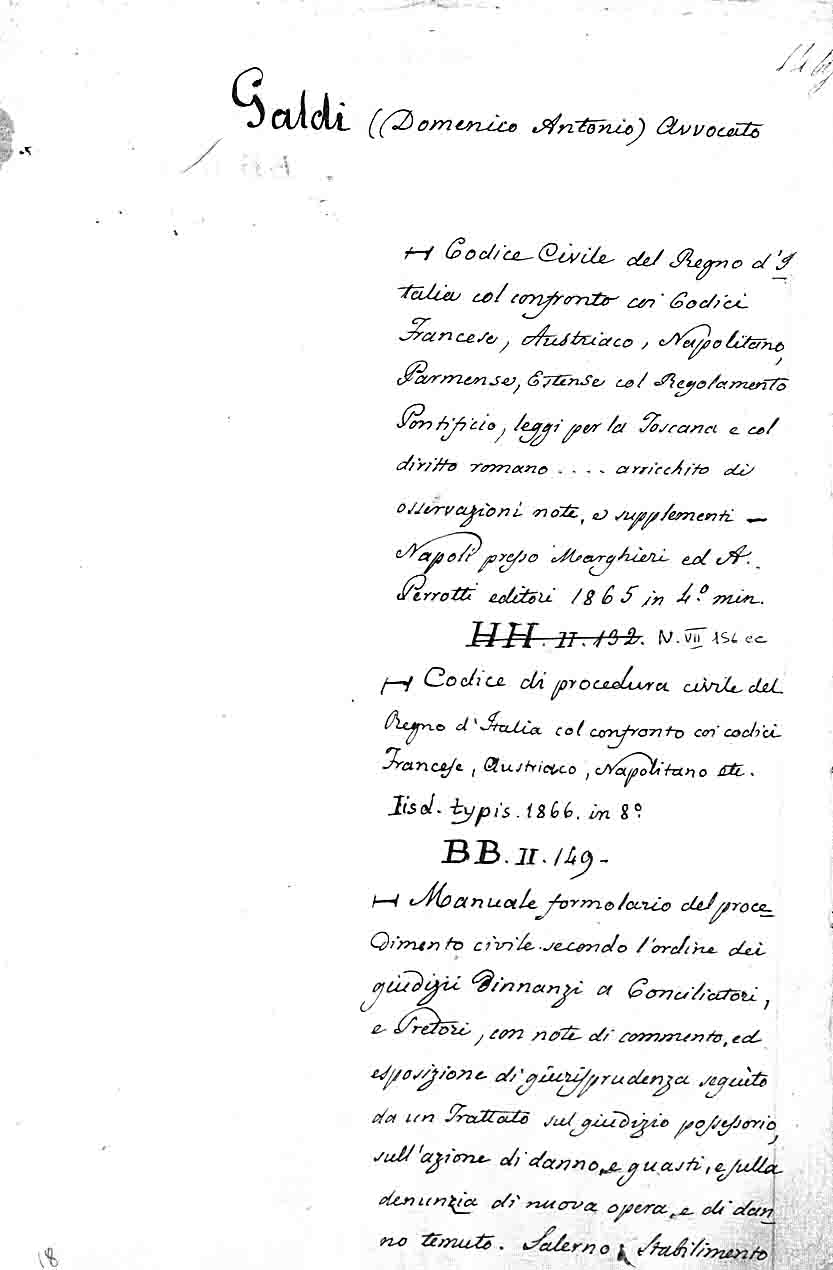 Galdi ((Domenico Antonio) Avvocato
Codice Civile del Regno d'I
talia col confronto coi Codici
Francese, Austriaco, Napolitano,
Parmense, Estense col Regolamento
Pontificio, leggi per la Toscana e col
diritto romano .... arricchito di
osservazioni note, e supplementi —
Napoli presso Marghieri ed A.
Perrotti editori 1865 in 4.º min.
HH. II. 132. N. VII 156 ec
Codice di procedura civile del
Regno d'Italia col confronto coi codici
Francese, Austriaco, Napolitano etc.
Iisd. typis. 1866. in 8º
BB. II. 149-
Manuale formolario del proce
dimento civile secondo l'ordine dei
giudizii dinnanzi a Conciliatori,
e Pretori, con note di commento, ed
esposizione di giurisprudenza seguito
da un Trattato sul giudizio possessorio,
sull'azione di danno, e guasti, e sulla
denunzia di nuova opera, e di dan
no temuto. Salerno Stabilimento
18